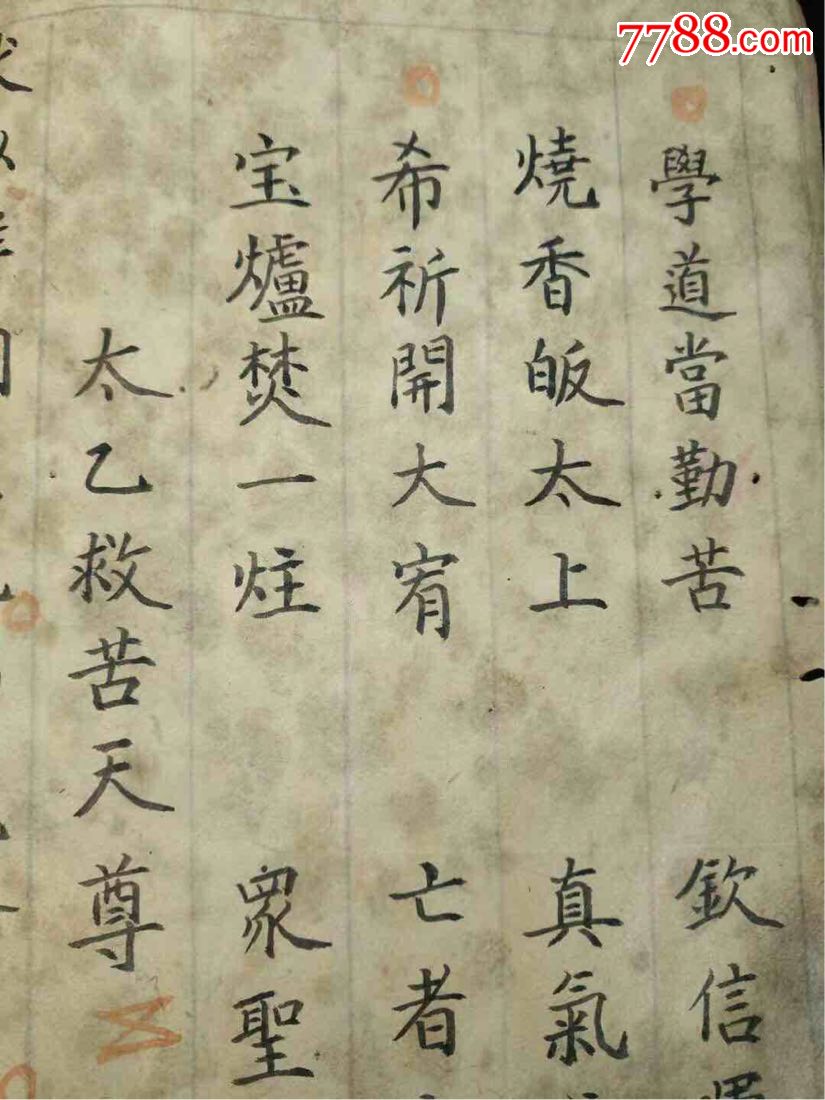 7788.com
學道當勤苦 欽信
燒香皈太上 真氣
希祈開大宥 亡者
宝爐焚一炷 眾聖
太乙救苦天尊